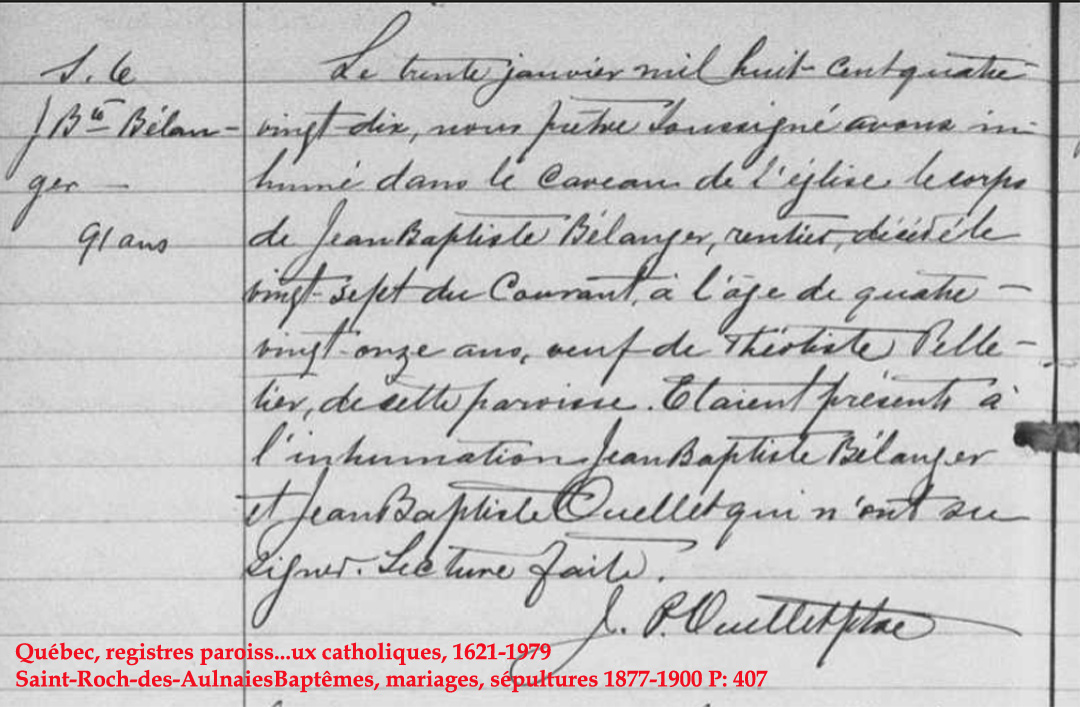 S. 6
J Bte Bélan-
ger —
91 ans
Le trente janvier mil huit cent quatre
vingt dix, nous prêtre soussigné avons in-
humé dans le caveau de l'église le corps
de Jean Baptiste Bélanger, rentier, décédé le
vingt-sept du courant, à l'âge de quatre —
vingt-onze ans, veuf de Théotiste Pelle-
tier, de cette paroisse. Etaient présents à
l'inhumation Jean Baptiste Bélanger
et Jean Baptiste Ouellet qui n'ont su
signer. Lecture faite.
J. P. Ouellet ptre
Québec, registres paroiss...ux catholiques, 1621-1979
Saint-Roch-des-AulnaiesBaptêmes, mariages, sépultures 1877-1900 P: 407